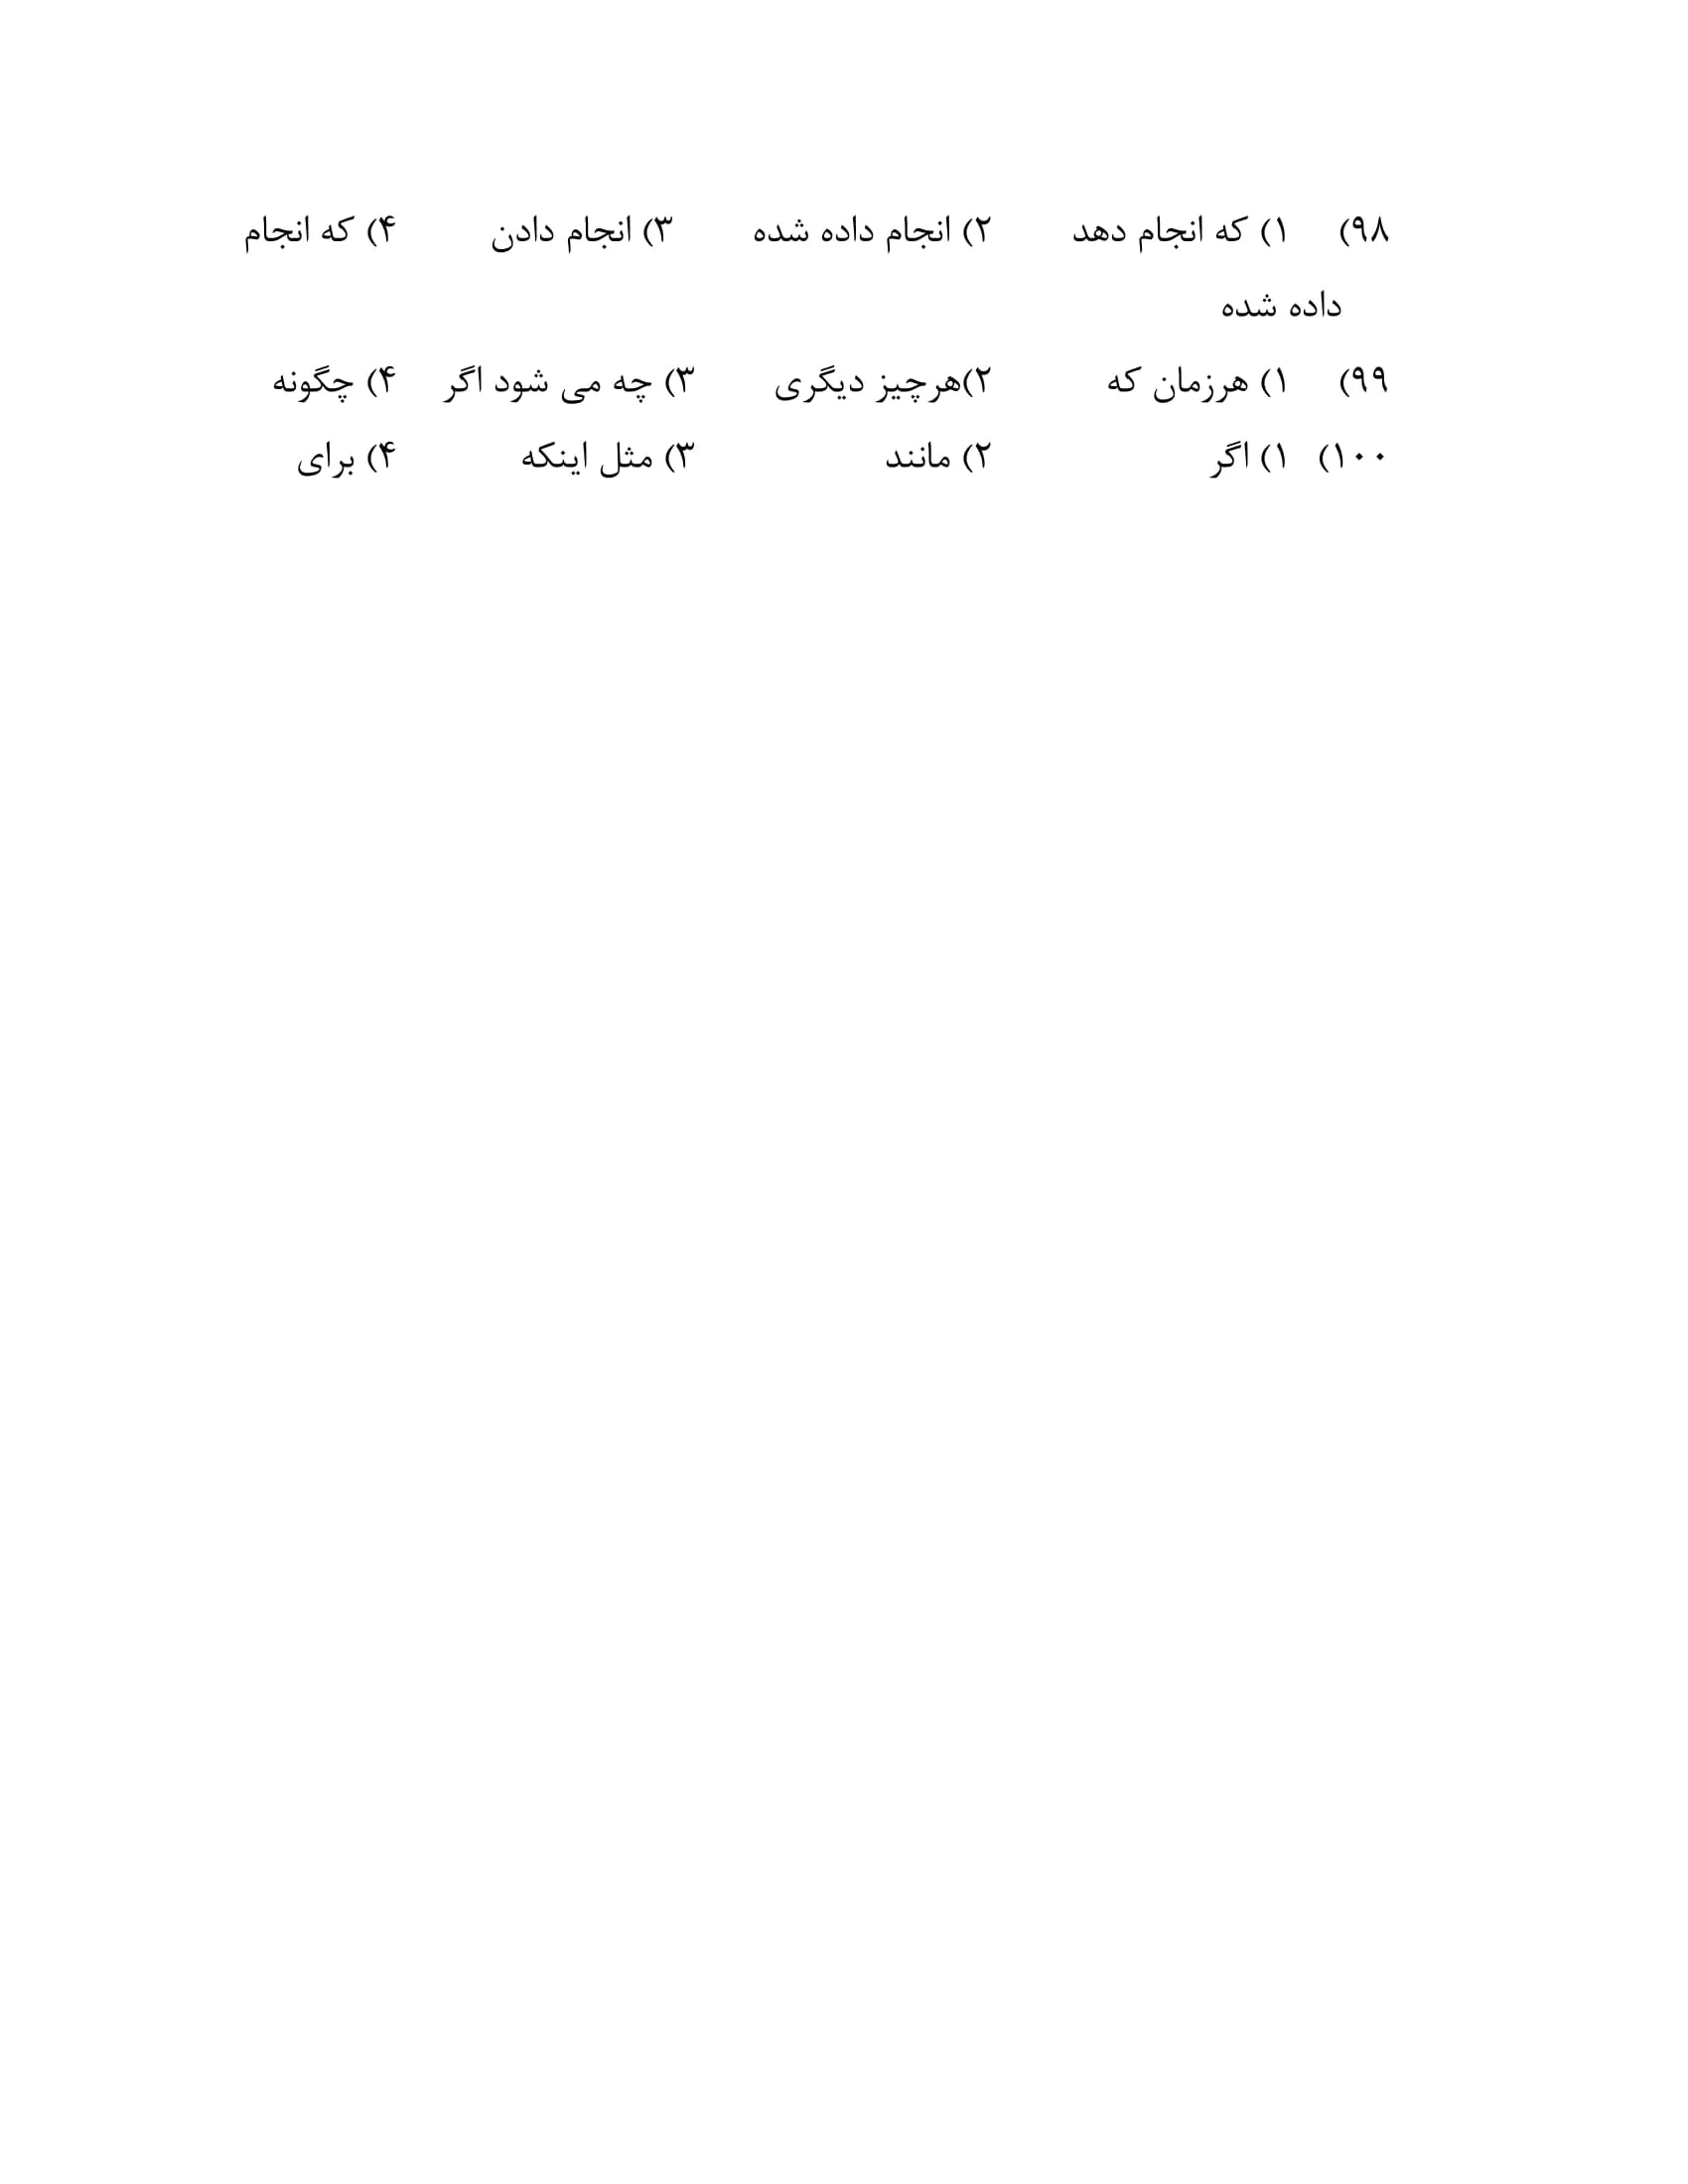 ۹۸) ۱) که انجام دهد ۲) انجام داده شده ۳) انجام دادن ۴) که انجام
داده شده
۹۹) ۱) هرزمان که ۲)هرچیز دیگری ۳) چه می شود اگر ۴) چگونه
۱۰۰) ۱) اگر ۲) مانند ۳) مثل اینکه ۴) برای